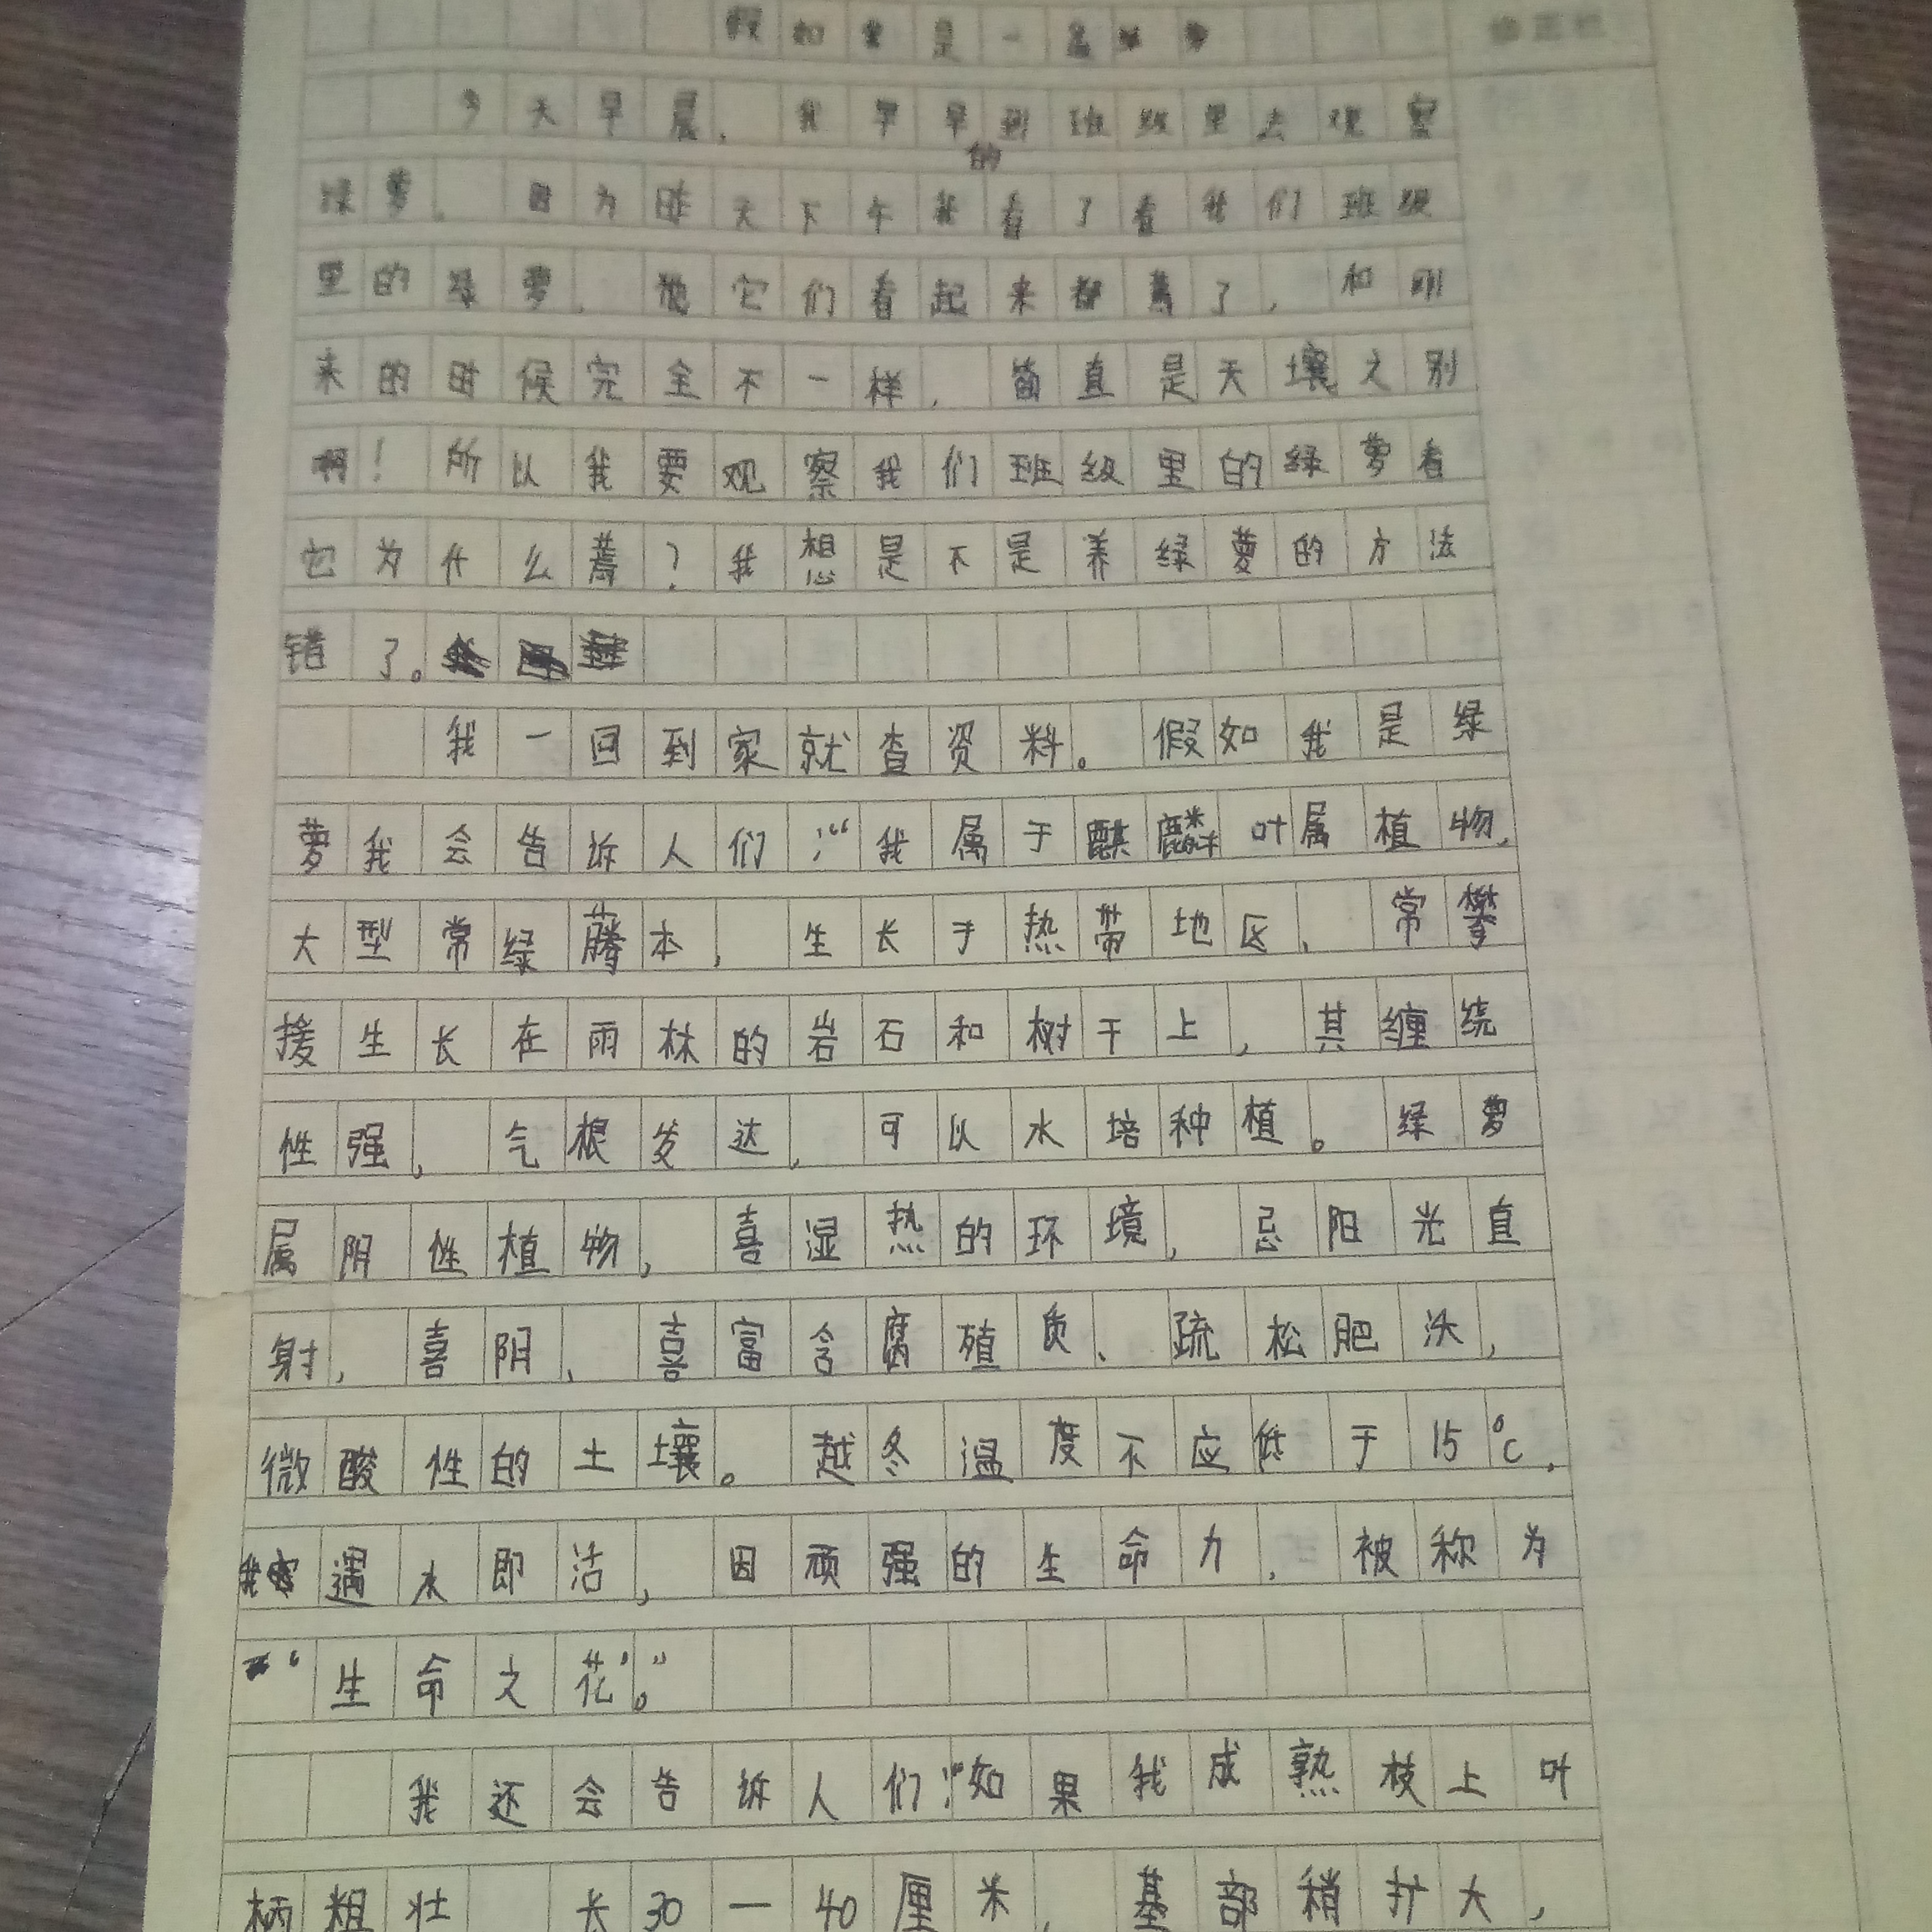 假如我是一名绿萝
今天早晨，我早早到班级里去观察
的
绿萝。因为昨天下午我看了看我们班级
里的绿萝，它们看起来都蔫了，和刚
来的时候完全不一样，简直是天壤之别
啊！所以我要观察我们班级里的绿萝看
它为什么蔫？我想是不是养绿萝的方法
错了。
我一回到家就查资料。假如我是绿
萝我会告诉人们：“我属于麒麟叶属植物，
大型常绿藤本，生长于热带地区，常攀
援生长在雨林的岩石和树干上，其缠绕
性强，气根发达，可以水培种植。绿萝
属阴性植物，喜湿热的环境，忌阳光直
射，喜阴，喜富含腐殖质、疏松肥沃，
微酸性的土壤。越冬温度不应低于15℃.
我遇水即活，因顽强的生命力，被称为
‘生命之花’。”
我还会告诉人们：“如果我成熟枝上叶
柄粗壮 长30—40厘米，基部稍扩大，